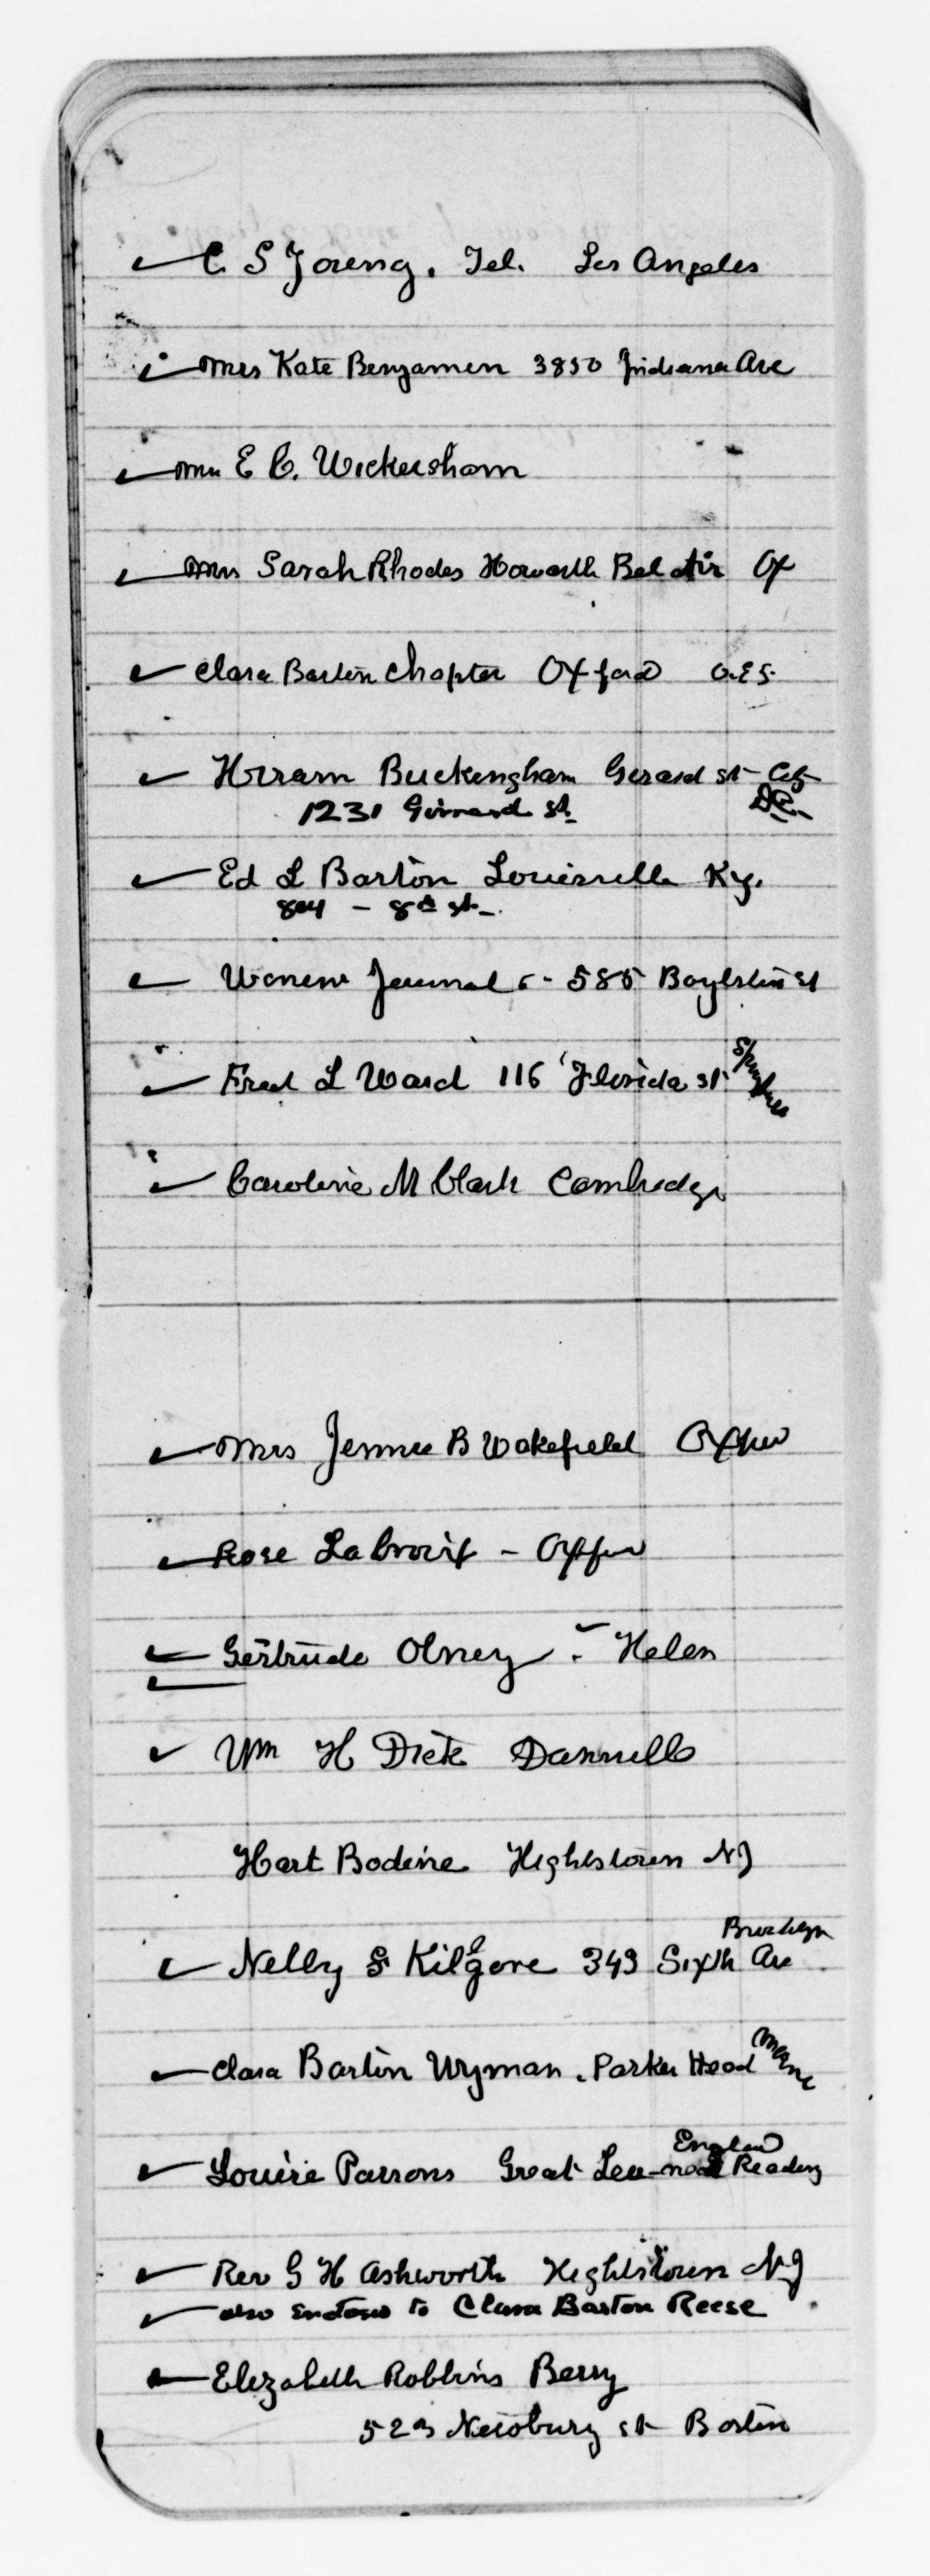 C. S Young. Tel. Los Angeles
Mrs Kate Benjamen 3850 Indiana Ave
Mrs E C. Wickersham
Mrs Sarah Rhodes Howarth Bel Air Ox
Clara Barton Chapter Oxford O.E.S.
Hiram Buckingham Gerard st - City
1231 Girrard st. D.C.
Ed L Barton Louisville Ky.
804 - 8th st -
Womens Journal - 585 Boylston st
Fred L Ward 116 Florida st
Caroline M Clark Cambridge
Mrs Jennie B Wakefield Oxford
Rose Lacroix - Oxford
Gertrude Olney - Helen
Wm H Dick Dansville
Hart Bodine Hightstown NJ
Brooklyn
Nelly S Kilgore 349 Sixth Av
Clara Barton Wyman. Parker Head Maine
England
Louise Parsons Great Reading
Rev G H Ashworth Hightstown NJ
also to Clara Barton Reese
Elizabeth Robbins Berry
523 Newbury st Boston